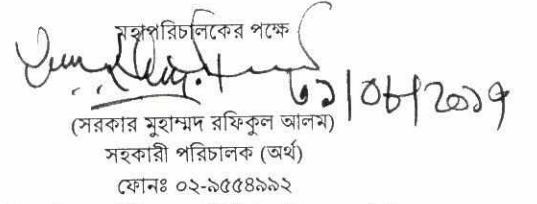 মহাপরিচালকের পক্ষে
৩১/০৮/২০১৭
(সরকার মুহাম্মদ রফিকুল আলম)
সহকারী পরিচালক (অর্থ)
ফোনঃ ০২-৯৫৫৪৯৯২